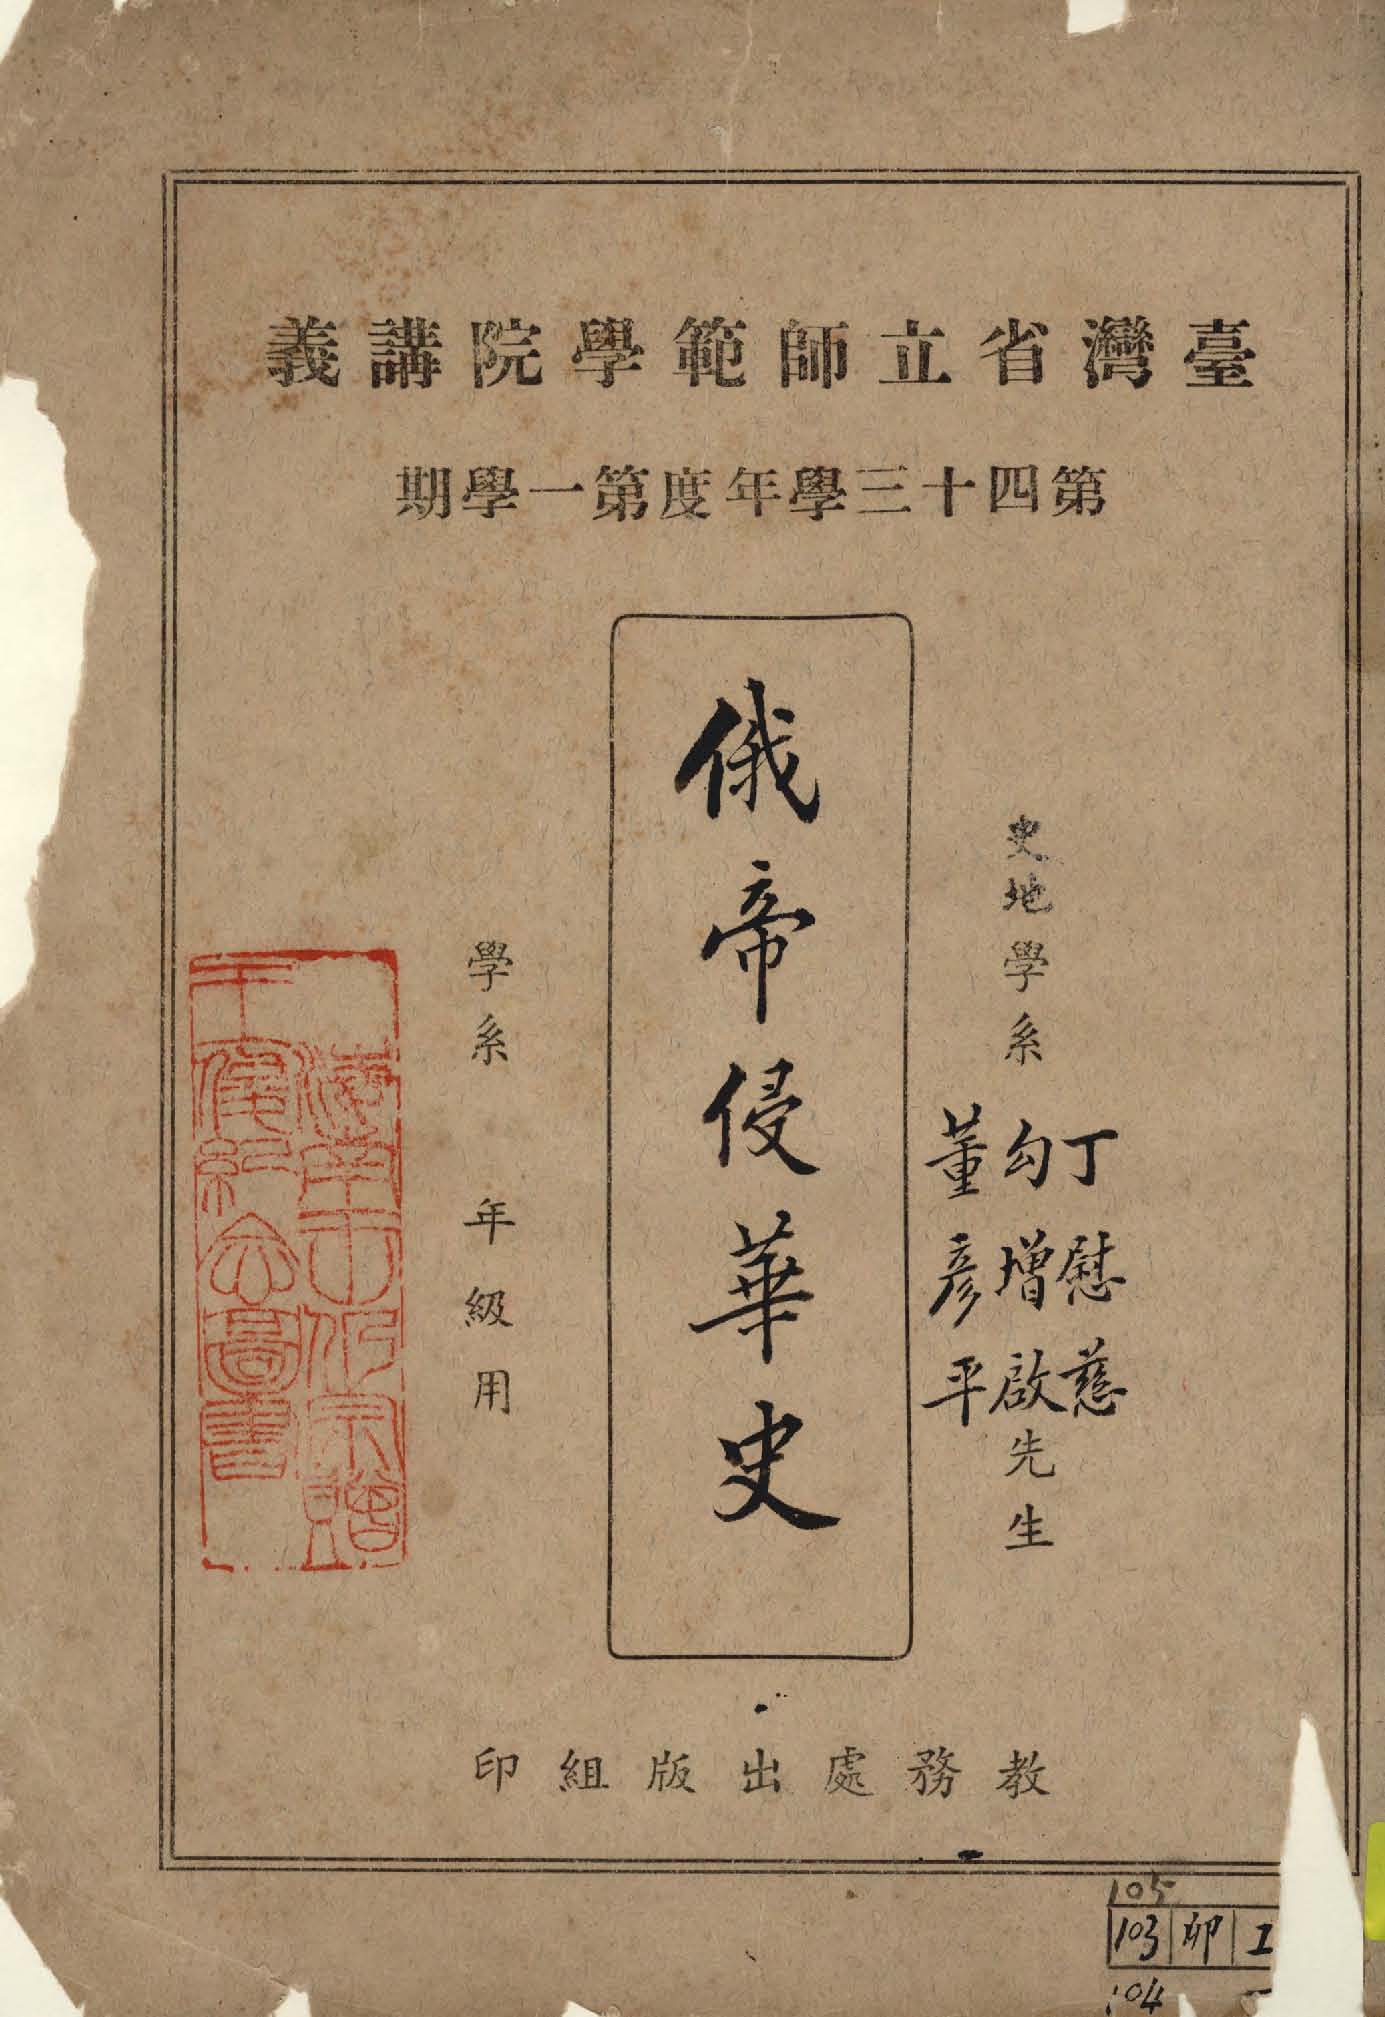 臺灣省立師範學院講義
第四十三學年度第一學期
史地學系
丁慰慈
勾增啟
董彥平
先生
俄帝侵華史
學系 年級用
教務處出版組印
105
103 卯
104